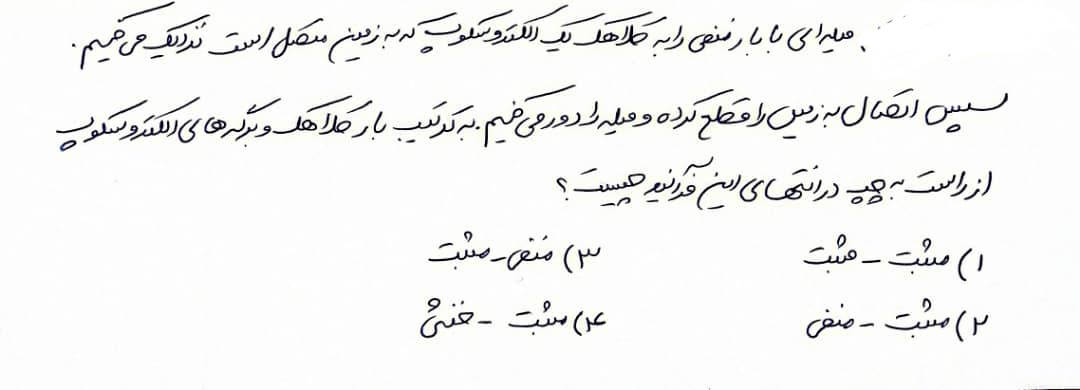 میله ای با بار منفی را به کلاهک یک الکتروسکوپ که به زمین متصل است نزدیک می کنیم.
سپس اتصال به زمین را قطع کرده و میله را دور می کنیم. به ترتیب بار کلاهک و برگه های الکتروسکوپ
از راست به چپ در انتهای این فرآیند چیست؟
۱) مثبت - مثبت ۳) منفی - مثبت
۲) مثبت - منفی ۴) مثبت - خنثی